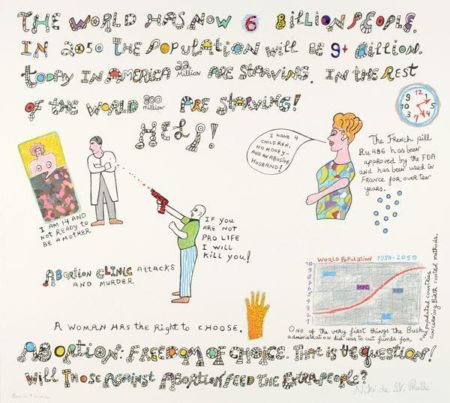 THE WORLD HAS NOW 6 BILLION PEOPLE.
IN 2050 THE POPULATION WILL BE 9+ BILLION.
TODAY IN AMERICA 22 Million ARE STARVING. IN THE REST
OF THE WORLD 800 million ARE STARVING!
HELP!
I HAVE 4
CHILDREN,
NO MONEY,
AND AN ABUSIVE
HUSBAND!
The French pill
Ru486 has been
approved by the FDA
and has been used in
France for over ten
years.
I AM 14 AND
NOT READY TO
BE A MOTHER
IF YOU
ARE NOT
PRO LIFE
I WILL
kill you!
ABORTION CLINIC ATTACKS
AND MURDER.
WORLD POPULATION 1950-2050
10
9
8
7
6
5
4
3
2
1
A WOMAN HAS THE RIGHT TO CHOOSE.
One of the very first things the Bush
administration did was to cut funds for
populated countries
concerning birth control methods.
ABORTION: FREEDOM OF CHOICE. THAT IS THE QUESTION!
WILL THOSE AGAINST ABORTION FEED THE EXTRA PEOPLE?
Niki de St. Phalle